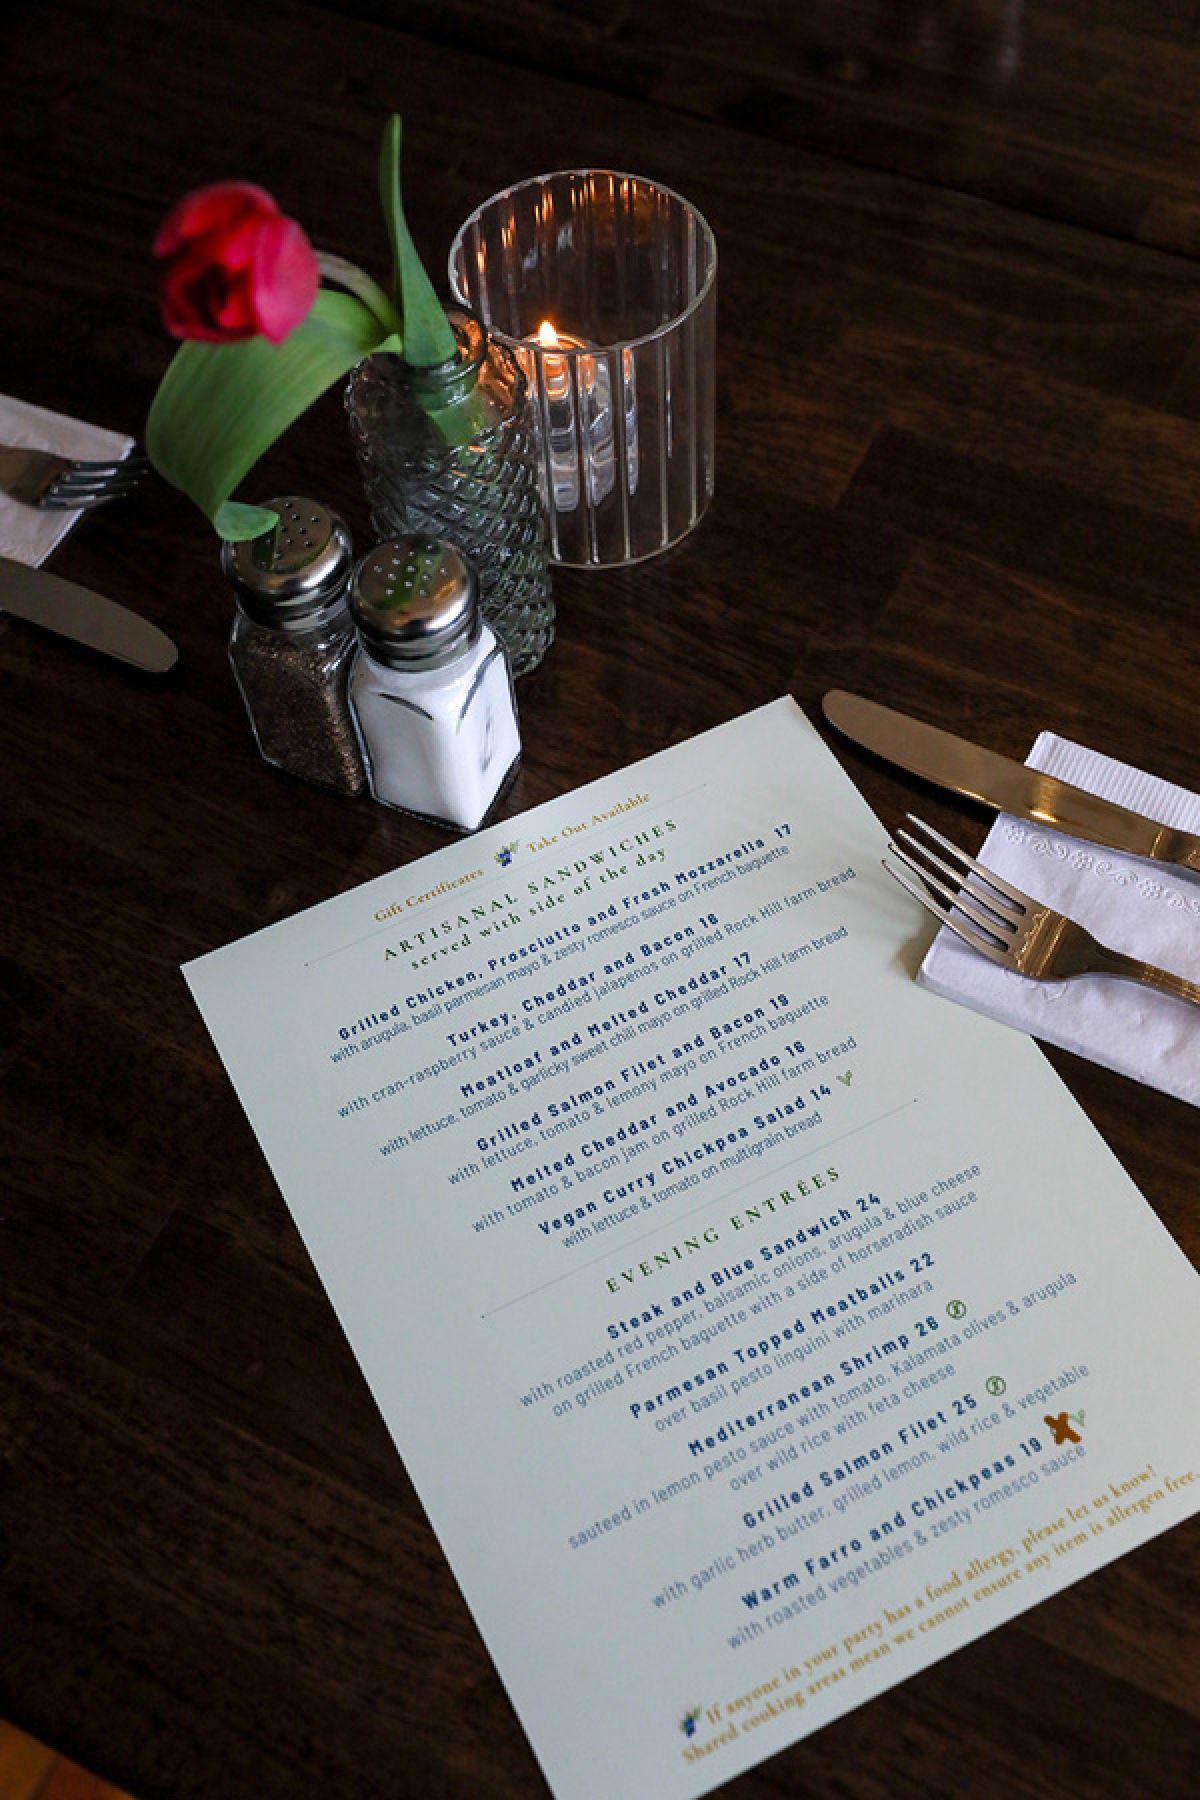 Gift Certificates Take Out Available
ARTISANAL SANDWICHES
served with side of the day
Grilled Chicken, Prosciutto and Fresh Mozzarella 17
with arugula, basil parmesan mayo & zesty romesco sauce on French baguette
Turkey, Cheddar and Bacon 16
with cran-raspberry sauce & candied jalapenos on grilled Rock Hill farm bread
Meatloaf and Melted Cheddar 17
with lettuce, tomato & garlicky sweet chili mayo on grilled Rock Hill farm bread
Grilled Salmon Filet and Bacon 19
with lettuce, tomato & lemony mayo on French baguette
Melted Cheddar and Avocado 16
with tomato & bacon jam on grilled Rock Hill farm bread
Vegan Curry Chickpea Salad 14 V
with lettuce & tomato on multigrain bread
EVENING ENTRÉES
Steak and Blue Sandwich 24
with roasted red pepper, balsamic onions, arugula & blue cheese
on grilled French baguette with a side of horseradish sauce
Parmesan Topped Meatballs 22
over basil pesto linguini with marinara
Mediterranean Shrimp 26
sauteed in lemon pesto sauce with tomato, Kalamata olives & arugula
over wild rice with feta cheese
Grilled Salmon Filet 25
with garlic herb butter, grilled lemon, wild rice & vegetable
Warm Farro and Chickpeas 19 V
with roasted vegetables & zesty romesco sauce
If anyone in your party has a food allergy, please let us know!
Shared cooking areas mean we cannot ensure any item is allergen free.